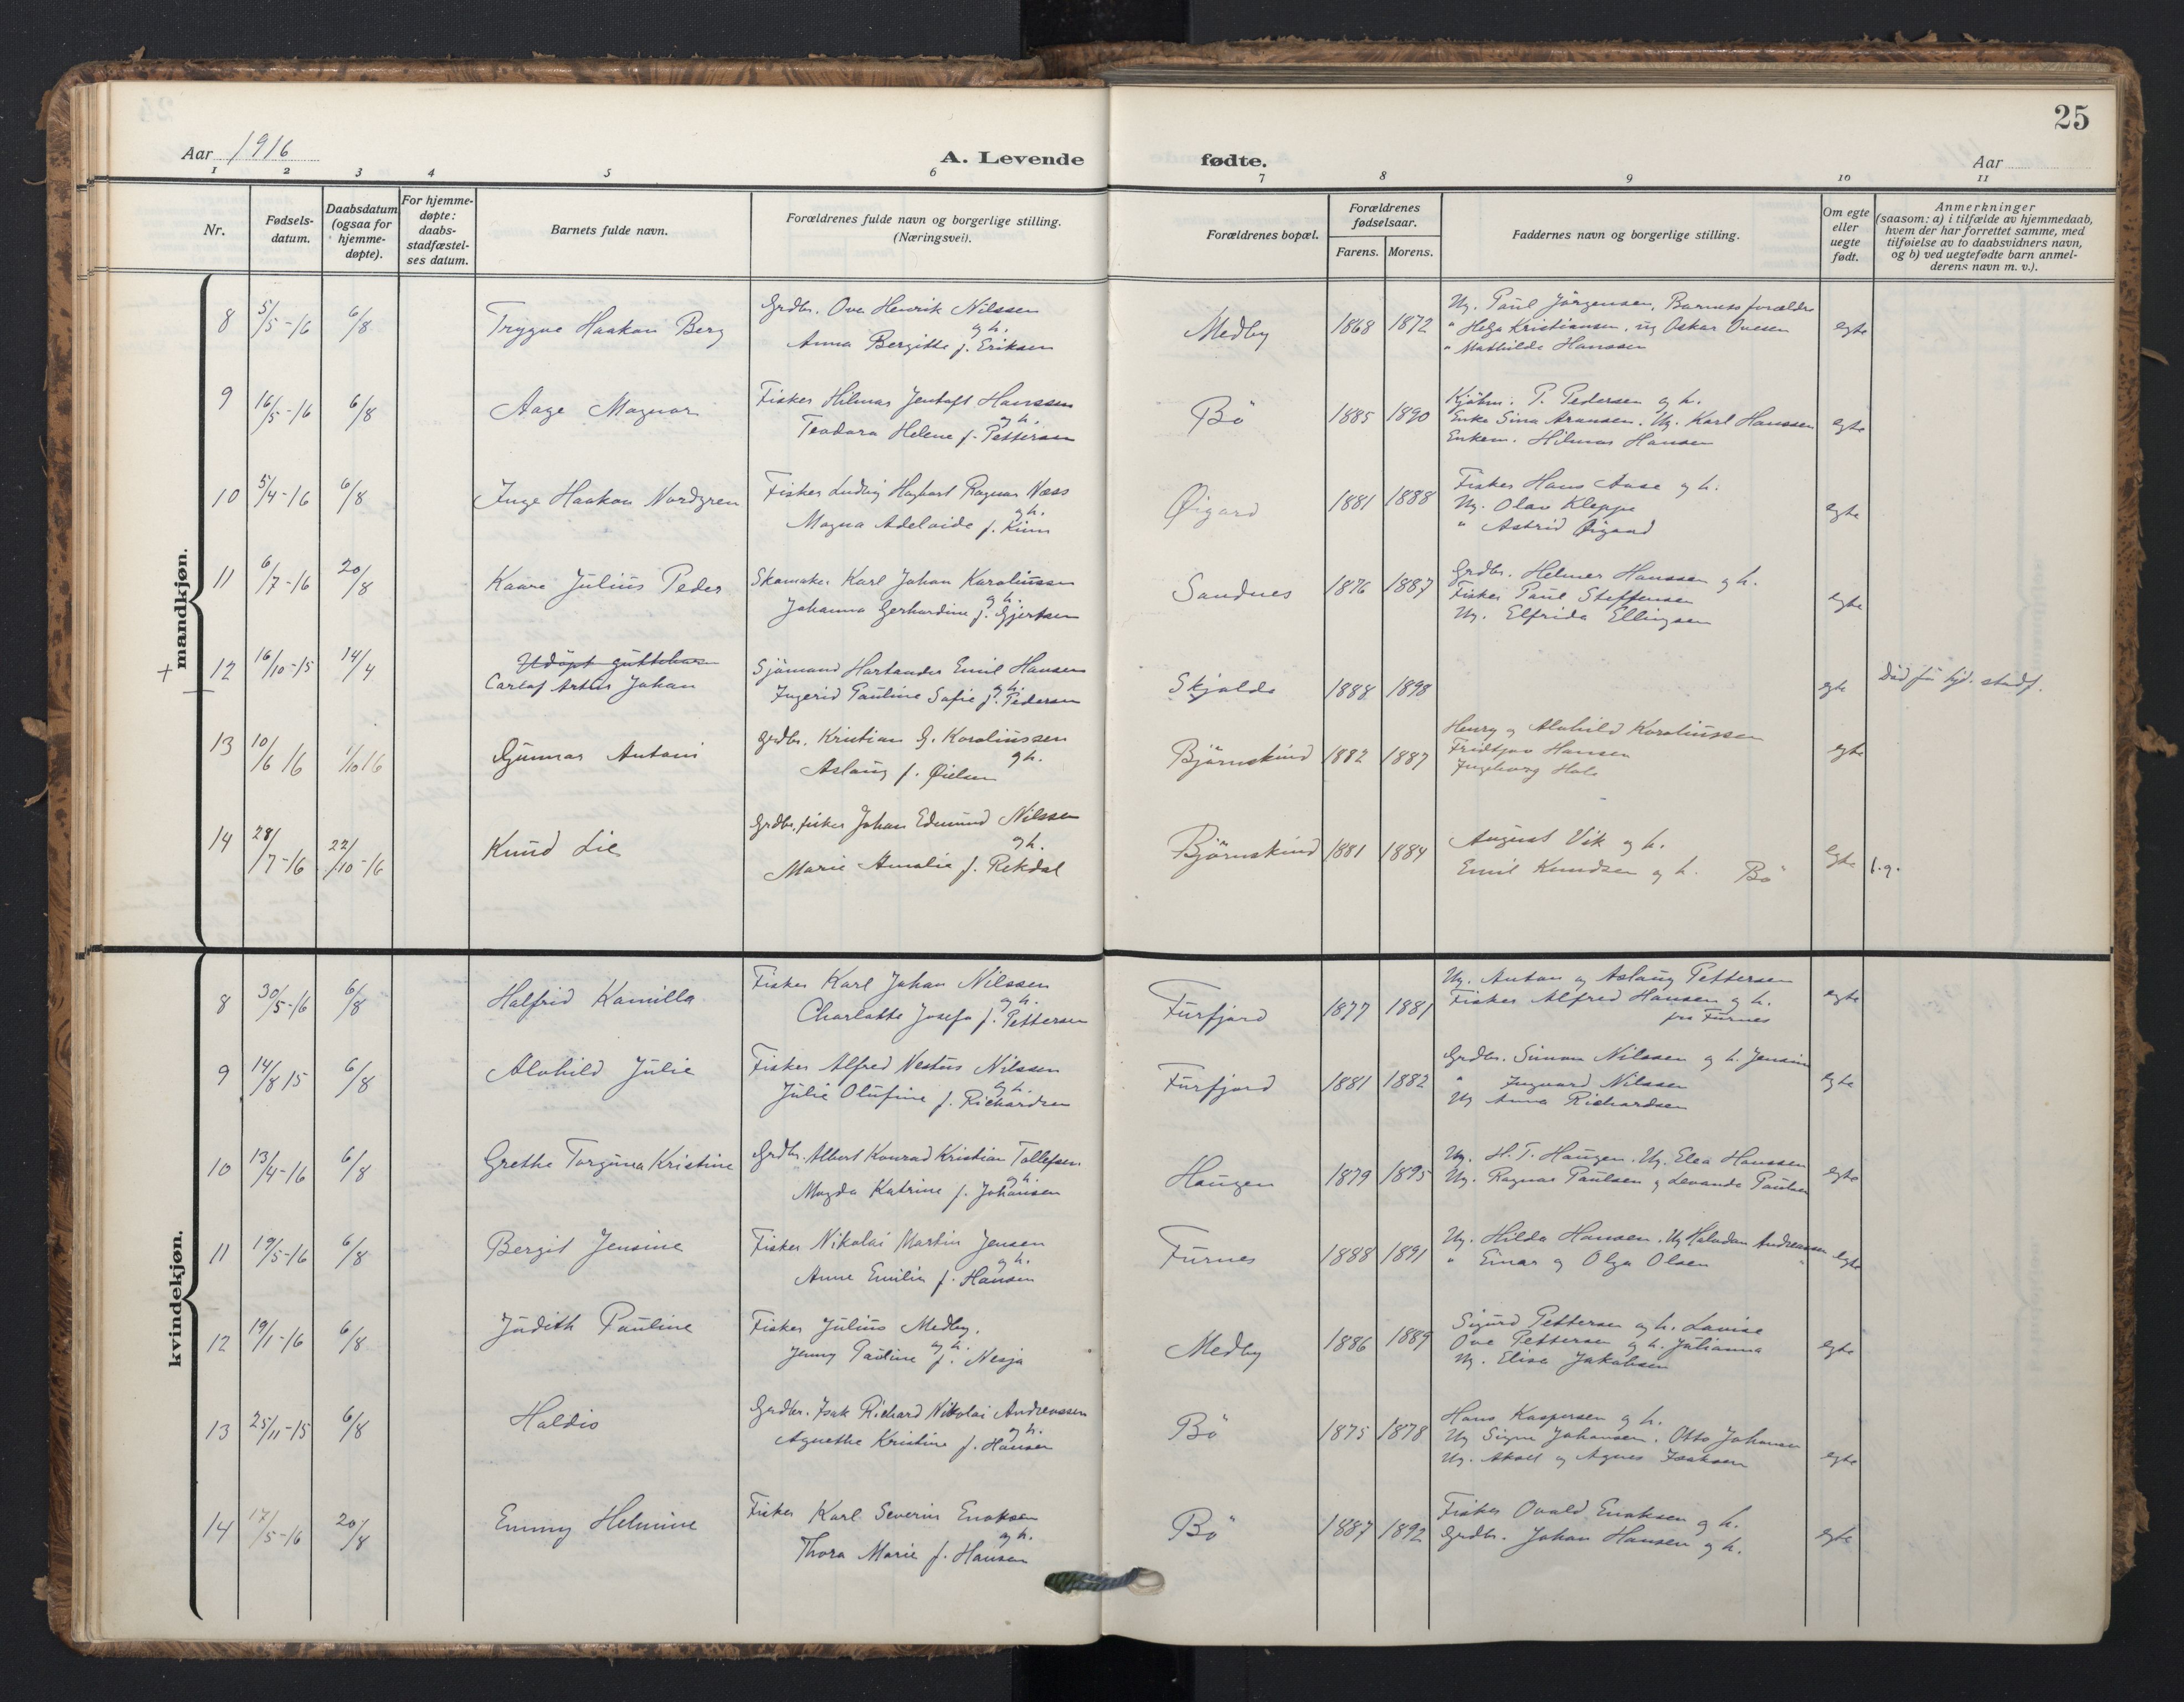 25
Aar 1916
A. Levende fødte.
Aar
1 2 3 4 5 6 7 8 9 10 11
Nr.
Fødsels-
datum.
Daabsdatum
(ogsaa for
hjemme-
døpte).
For hjemme-
døpte:
daabs-
stadfæstel-
ses datum.
Barnets fulde navn.
Forældrenes fulde navn og borgerlige stilling.
(Næringsvei).
Forældrenes bopæl.
Forældrenes
fødselsaar.
Farens. Morens.
Faddernes navn og borgerlige stilling.
Om egte
eller
uegte
født.
Anmerkninger
(saasom: a) i tilfælde av hjemmedaab,
hvem der har forrettet samme, med
tilføielse av to daabsvidners navn,
og b) ved uegtefødte barn anmel-
derens navn m. v.).
mandkjøn.
8 5/5-16 6/8 Trygve Haakon Berg Medby 1868 1872 egte
Grdbr. Ove Henrik Nilssen
og h.
Anna Bergitte f. Eriksen
Ug. Paul Jörgensen, Barnets forældre
" Helga Kristiansen, ug Oskar Ovesen
" Mathilde Hanssen
9 16/5-16 6/8 Aage Magnar Bö 1885 1890 egte
Fisker Hilmar Jentoft Hanssen
og h.
Teodora Helene f. Pettersen
Kjøbm. P. Pedersen og h.
Enke Sina Aronsen. Ug. Karl Hanssen
Enkem. Hilmar Hansen
10 5/4-16 6/8 Inge Haakon Nordgren Øigard 1881 1888 egte
Fisker Ludvig Hagbart Ragnar Næss
og h.
Magna Adelaide f. Kiim
Fisker Hans Aase og h.
Ug. Olav Kleppe
" Astrid Øigard
11 6/7-16 20/8 Kaare Julius Peder Sandnes 1876 1887 egte
Skomaker Karl Johan Karoliussen
og h.
Johanna Gerhardine f. Gjertsen
Grdbr. Helmer Hanssen og h.
Fisker Paul Steffensen
Ug. Elfrida Ellingsen
+ 12 16/10-15 14/4 Udöpt guttebarn Skjolde 1888 1898 egte Död för kjd. stadf.
Carlof Artur Johan
Sjömand Hartander Emil Hansen
og h.
Ingerid Pauline Sofie f. Pedersen
13 10/6 16 1/10 16 Gunnar Antoni Björnskind 1882 1887 egte
Grdbr. Kristian G. Karoliussen
og h.
Aslaug f. Øielsen
Henry og Alvhild Karoliussen
Fridtjov Hansen
Ingeborg Hals
14 28/7-16 22/10-16 Knud Lie Björnskind 1881 1884 egte f.g.
Grdbr. fisker Johan Edmund Nilssen
og h.
Marie Amalia f. Rekdal
August Vik og h.
Emil Knudsen og h. Bö
kvindekjøn.
8 30/5-16 6/8 Halfrid Kamilla Furfjord 1877 1881 egte
Fisker Karl Johan Nilssen
og h.
Charlotte Josefa f. Pettersen
Ug. Anton og Aslaug Pettersen
Fisker Alfred Hansen og h.
fra Furnes
9 14/8 15 6/8 Alvhild Julie Furfjord 1881 1882 egte
Fisker Alfred Nestus Nilssen
og h.
Julie Olufine f. Richardsen
Grdbr. Simon Nilssen og h. Jensine
" Ingvard Nilssen
Ug Anna Richardsen
10 13/4-16 6/8 Grethe Torguna Kristine Haugen 1879 1895 egte
Grdbr. Albert Konrad Kristian Tollefsen
og h.
Magda Katrine f. Johansen
Ug. H.T. Haugen. Ug. Elea Hanssen
Ug. Ragnar Paulsen og Levande Paulsen
11 19/5-16 6/8 Bergit Jensine Furnes 1888 1891 egte
Fisker Nikolai Martin Jensen
og h.
Anne Emilie f. Hansen
Ug. Hilda Hansen. Ug Halvdan Andreassen
" Einar og Olga Olsen
12 19/1-16 6/8 Judith Pauline Medby 1886 1889 egte
Fisker Julius Medby.
og h.
Jenny Pauline f. Nesja
Sigurd Pettersen og h. Lovise
Ove Pettersen og h. Julianna
Ug. Elise Jakobsen
13 25/11-15 6/8 Haldis Bö 1875 1878 egte
Grdbr. Isak Richard Nikolai Andreassen
og h.
Agnethe Kristine f. Hansen
Hans Kaspersen og h.
Ug Signe Johansen. Otto Johansen
Ug. Aksel og Agnes Isaksen
14 17/5-16 20/8 Emmy Helmine Bö 1887 1892 egte
Fisker Karl Severin Enoksen
og h.
Thora Marie f. Hansen
Fisker Osvald Enoksen og h.
Grdbr. Johan Hansen og h.